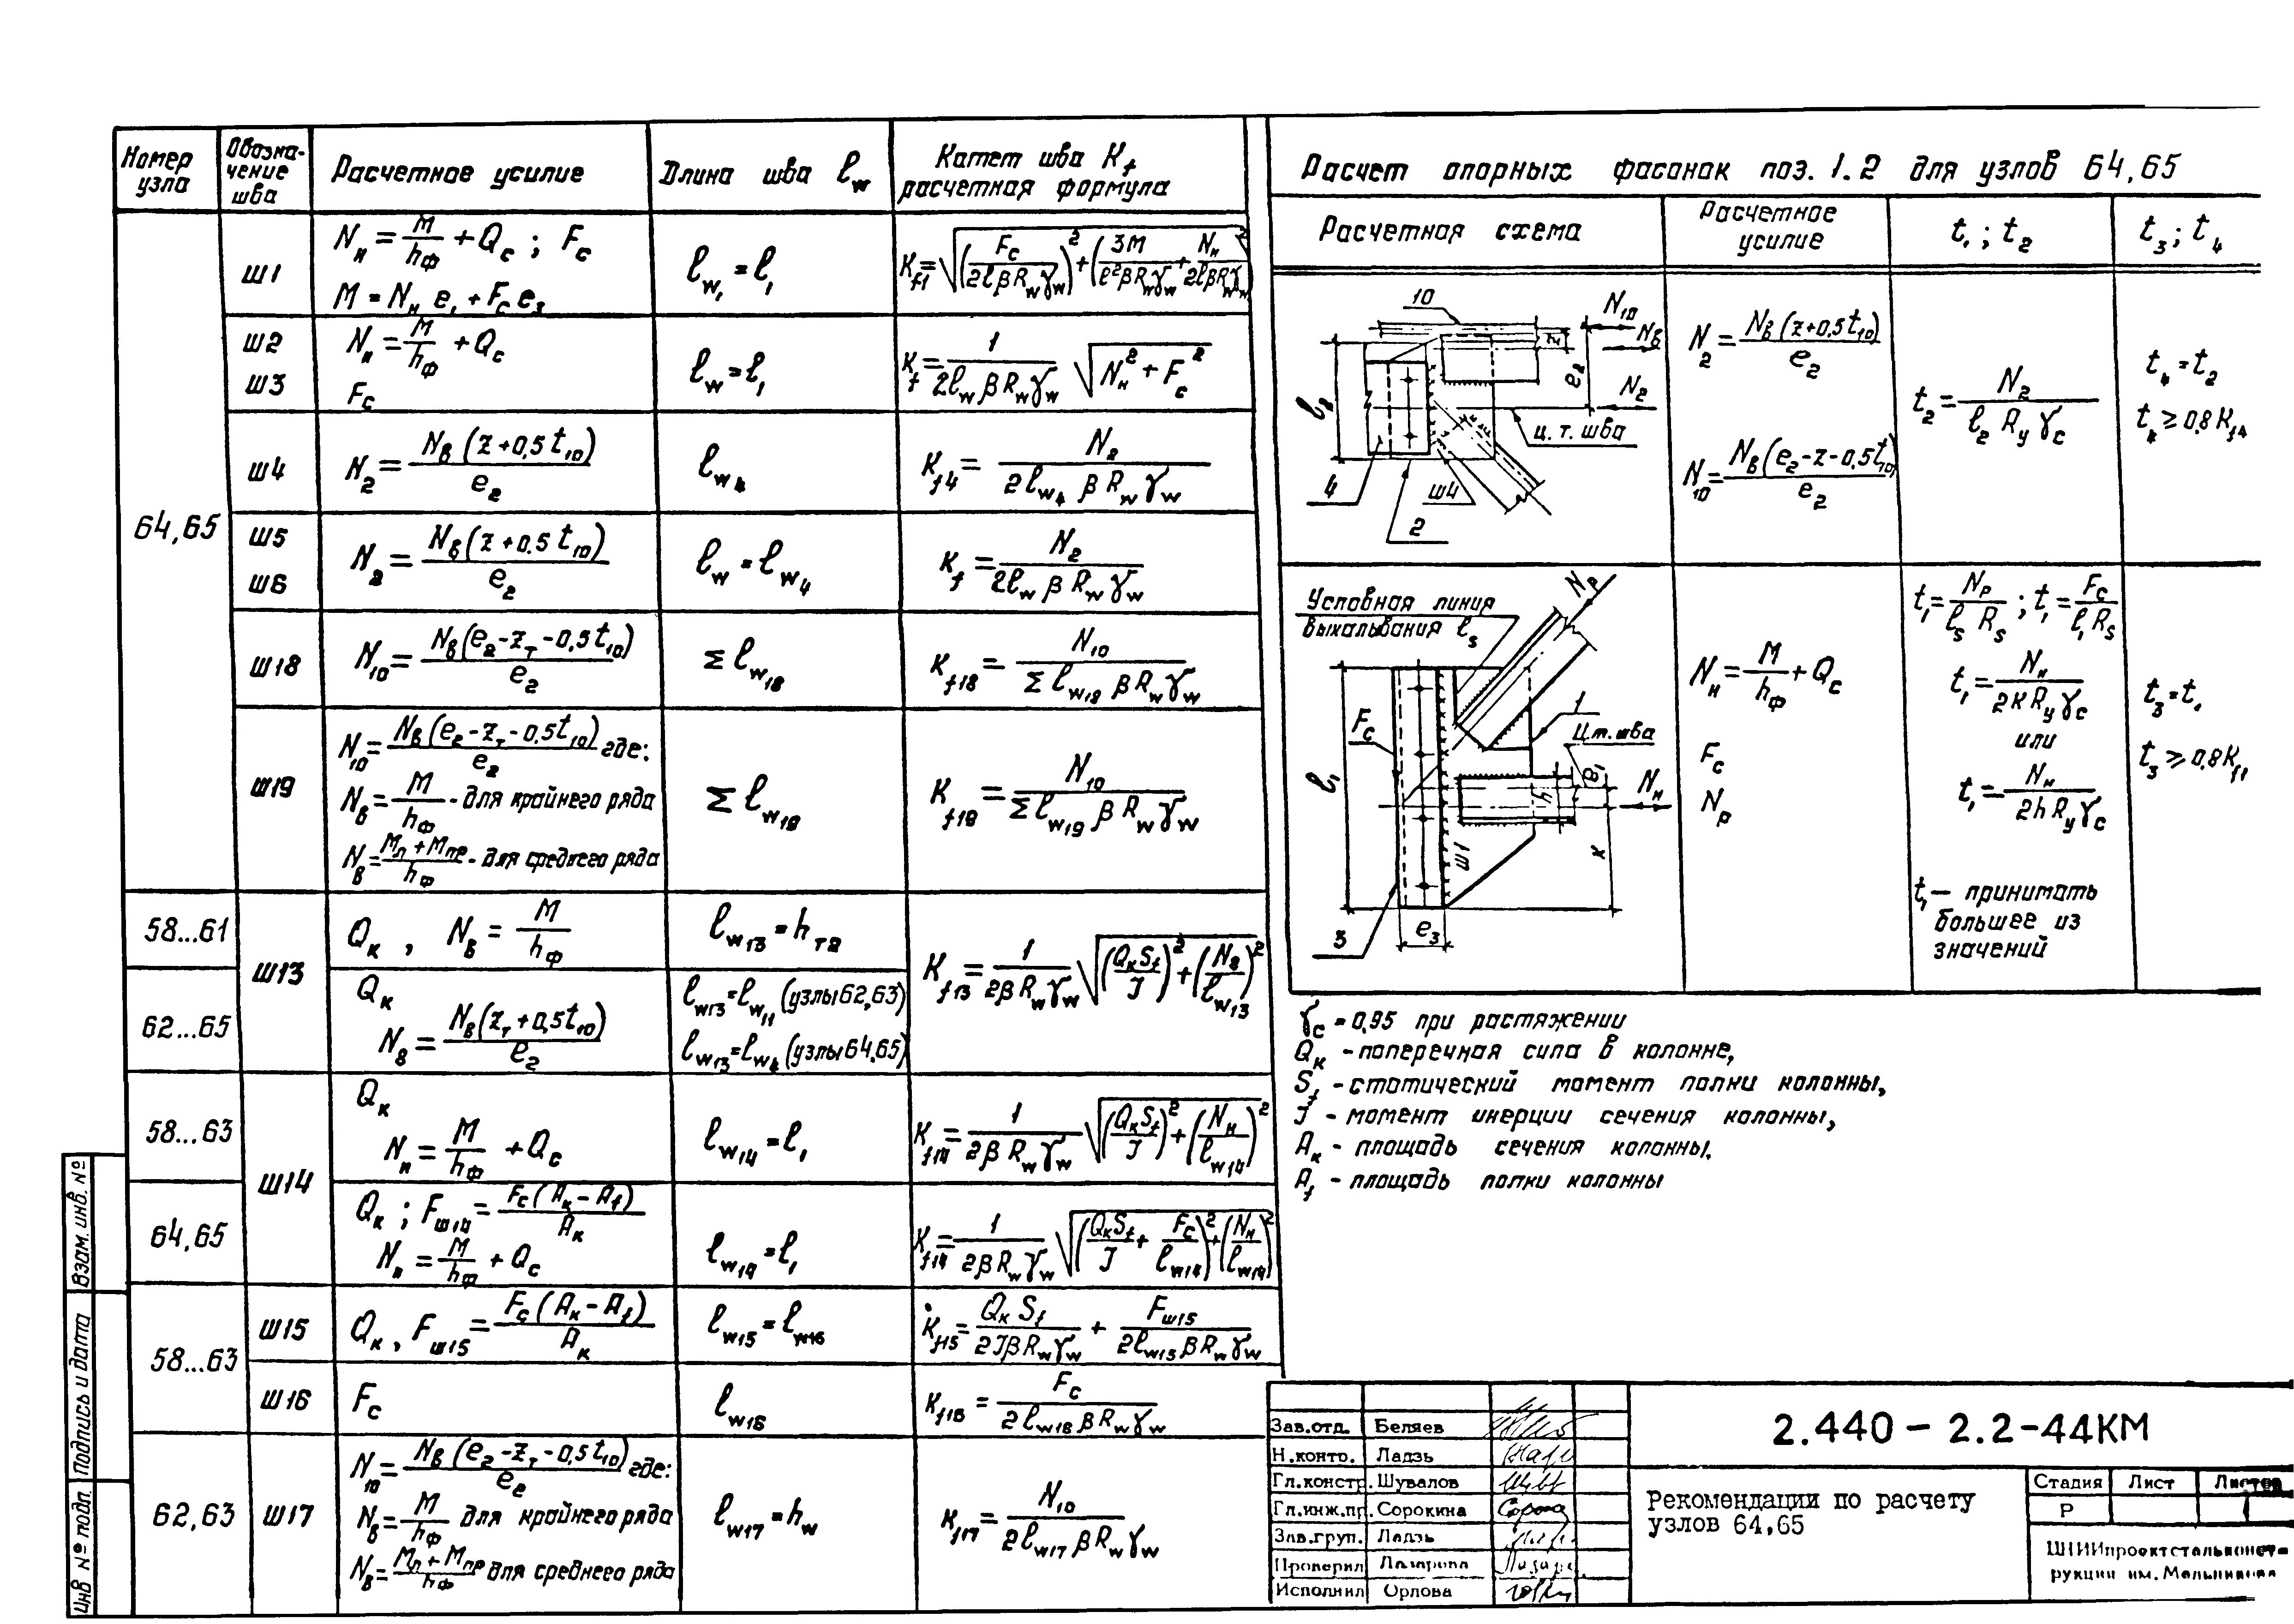 Номер узла
Обозна-
чение
шва
Расчетное усилие
Длина шва ℓw
Катет шва Kf
расчетная формула
64,65
Ш1
Nн = M/hф + Qc ; Fc
M = Nн e1 + Fc e3
ℓw1 = ℓ1
Kf1 = √((Fc/(2ℓβRwγw))² + (3M/(ℓ²βRwγw) + Nн/(2ℓβRwγw))²)
Ш2
Ш3
Nн = M/hф + Qc
Fc
ℓw = ℓ1
Kf = 1/(2ℓw β Rw γw) √(Nн² + Fc²)
Ш4
N2 = Nв (z + 0,5 t10)/e2
ℓw4
Kf4 = N2/(2ℓw4 β Rw γw)
Ш5
Ш6
N2 = Nв (z + 0,5 t10)/e2
ℓw = ℓw4
Kf = N2/(2ℓw β Rw γw)
Ш18
N10 = Nв (e2 - zт - 0,5 t10)/e2
Σ ℓw18
Kf18 = N10/(Σ ℓw18 β Rw γw)
Ш19
N10 = Nв (e2 - zт - 0,5 t10)/e2 где:
Nв = M/hф - для крайнего ряда
Nв = (Mл + Mпр)/hф - для среднего ряда
Σ ℓw19
Kf19 = N10/(Σ ℓw19 β Rw γw)
58...61
Ш13
Qк , Nв = M/hф
ℓw13 = hт2
Kf13 = 1/(2β Rw γw) √((Qк Sf/J)² + (N8/ℓw13)²)
62...65
Qк
N8 = Nв (zт + 0,5 t10)/e2
ℓw13 = ℓw11 (узлы 62,63)
ℓw13 = ℓw4 (узлы 64,65)
58...63
Ш14
Qк
Nн = M/hф + Qc
ℓw14 = ℓ1
Kf14 = 1/(2β Rw γw) √((Qк Sf/J)² + (Nн/ℓw14)²)
64,65
Qк ; Fш14 = Fc (Aк - Af)/Aк
Nн = M/hф + Qc
ℓw14 = ℓ1
Kf14 = 1/(2β Rw γw) √((Qк Sf/J + Fc/ℓw14)² + (Nн/ℓw14)²)
58...63
Ш15
Qк , Fш15 = Fc (Aк - Af)/Aк
ℓw15 = ℓw16
Kf15 = Qк Sf/(2Jβ Rw γw) + Fш15/(2ℓw15 β Rw γw)
Ш16
Fc
ℓw16
Kf16 = Fc/(2ℓw16 β Rw γw)
62,63
Ш17
N10 = Nв (e2 - zт - 0,5 t10)/e2 где:
Nв = M/hф для крайнего ряда
Nв = (Mл + Mпр)/hф для среднего ряда
ℓw17 = hw
Kf17 = N10/(2ℓw17 β Rw γw)
Расчет опорных фасонок поз. 1.2 для узлов 64,65
Расчетная схема
Расчетное
усилие
t1 ; t2
t3 ; t4
10
N10
Nв
N2
z
e2
ℓ2
ц. т. шва
4
Ш4
2
N2 = Nв (z + 0,5 t10)/e2
N10 = Nв (e2 - z - 0,5 t10)/e2
t2 = N2/(ℓ2 Ry γc)
t4 = t2
t4 ≥ 0,8 Kf4
Условная линия
выкалывания ℓs
Nр
Fc
ℓ1
1
Ц.т. шва
e1
h
Nн
Ш1
к
3
e3
Nн = M/hф + Qc
Fc
Nр
t1 = Nр/(ℓs Rs) ; t1 = Fc/(ℓ1 Rs)
t1 = Nн/(2к Ry γc)
или
t1 = Nн/(2h Ry γc)
t1 — принимать
большее из
значений
t3 = t1
t3 ≥ 0,8 Kf1
γc = 0,95 при растяжении
Qк - поперечная сила в колонне,
Sf - статический момент полки колонны,
J - момент инерции сечения колонны,
Aк - площадь сечения колонны.
Af - площадь полки колонны
Взам. инв. №
Подпись и дата
Инв № подл.
Зав.отд. Беляев
Н.контр. Ладзь
Гл.констр. Шувалов
Гл.инж.пр. Сорокина
Зав.груп. Ладзь
Проверил Лазарева
Исполнил Орлова
2.440 - 2.2-44КМ
Рекомендации по расчету
узлов 64,65
Стадия Лист Листов
Р 1
ЦНИИпроектстальконст-
рукции им. Мельникова